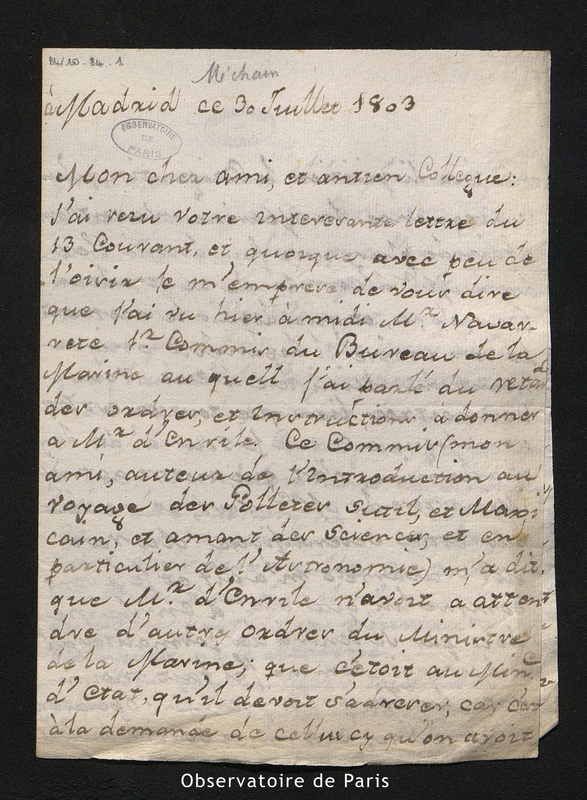 B4/10-84-1
Méchain
à Madrid ce 30 Juillet 1803
OBSERVATOIRE
DE
PARIS
Mon cher ami, et antien Collegue:
J'ai reru votre interesante lettre du
13 Courant, et quoique avec peu de
l'oirir je m'emprere de vour dire
que j'ai vu hier à midi M.r Navar-
rete 1.r Commir du Bureau de la
Marine au quell j'ai parlé du retar
der ordrer, et Inrtructionr à donner
a M.r d'Enrile. Ce Commir (mon
ami, auteur de l'Introduction au
voyage der Golleter Sutil, et Mexi
cain, et amant der Sciencer, et en
particulier de l'Artronomie) m'a dit.
que M.r d'Enrile n'avoit a atten
dre d'autry ordrer du Minirtre
de la Marine; que c'étoit au Min.
d'Etat, qu'il devoit s'adrerer, car c'er
à la demande de celluicy qu'on avoit
Observatoire de Paris